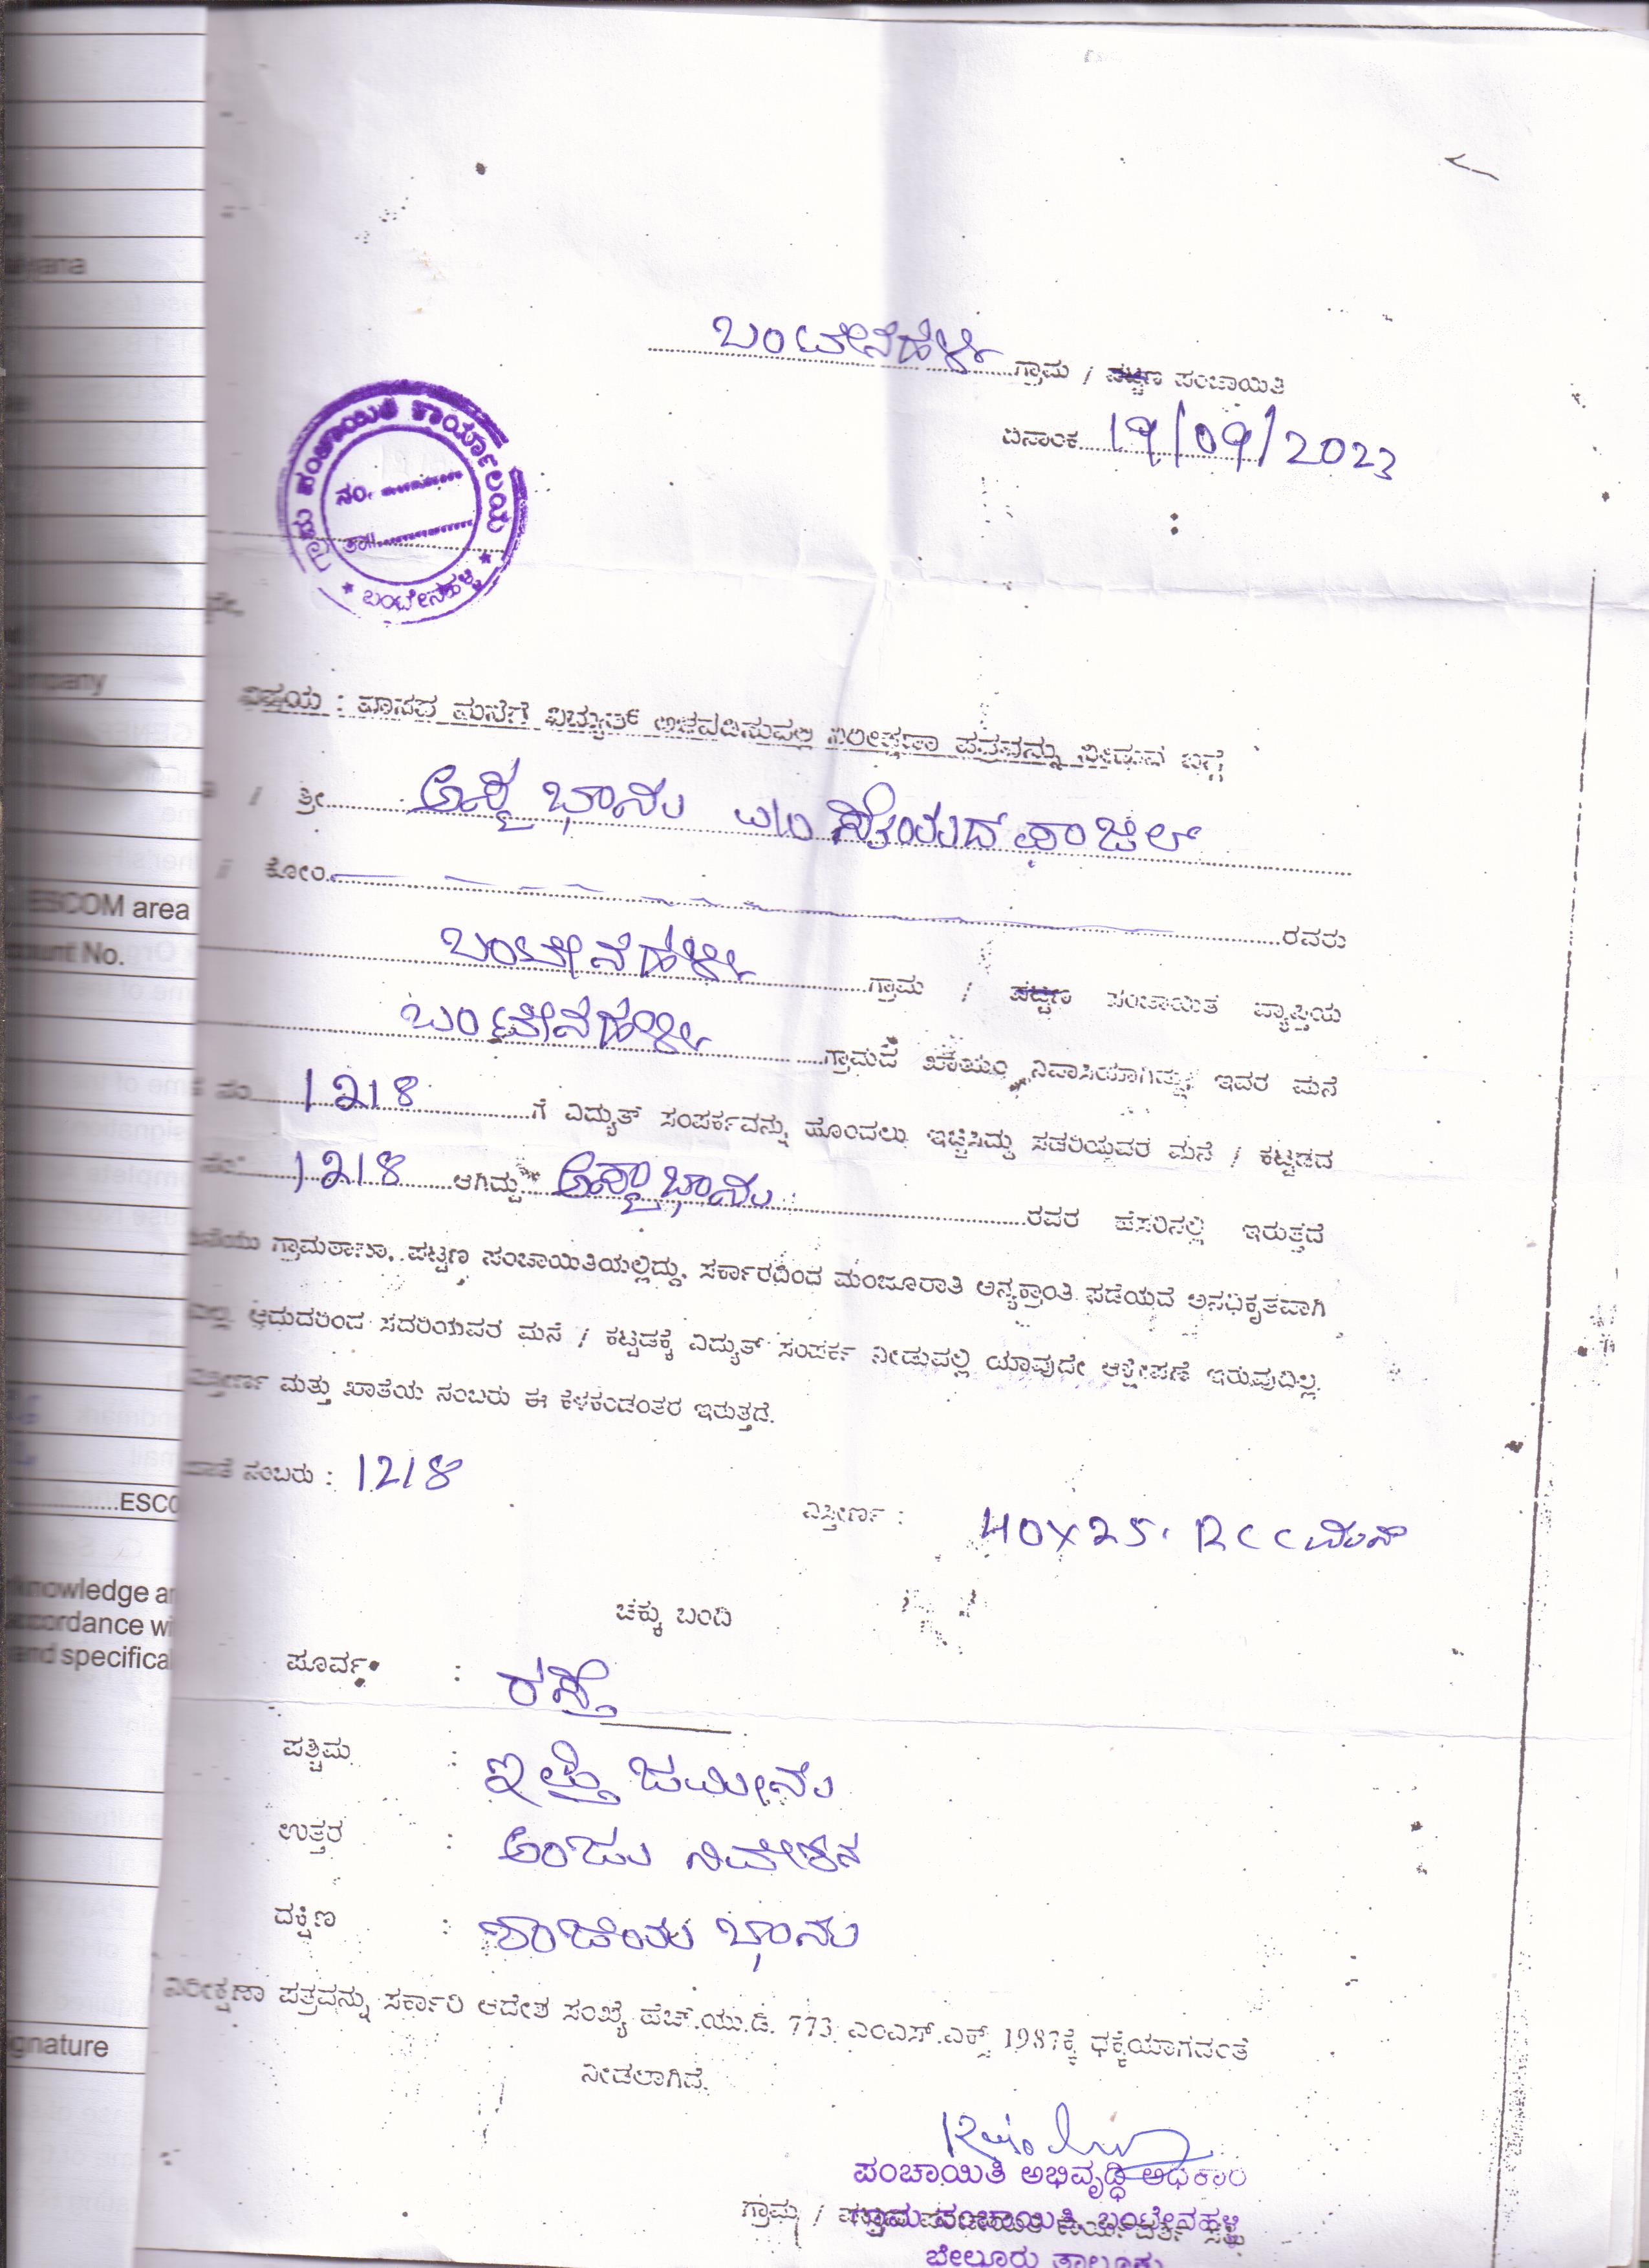 ಬಂಟೇನಹಳ್ಳಿ ಗ್ರಾಮ / ಪಟ್ಟಣ ಪಂಚಾಯಿತಿ
ದಿನಾಂಕ 19/09/2023
ಪಂಚಾಯಿತಿ ಕಾರ್ಯಾಲಯ
ನಂ.
ತಾ||
* ಬಂಟೇನಹಳ್ಳಿ *
ವಿಷಯ : ವಾಸದ ಮನೆಗೆ ವಿದ್ಯುತ್ ಅಳವಡಿಸುವಲ್ಲಿ ನಿರೀಕ್ಷಣಾ ಪತ್ರವನ್ನು ನೀಡುವ ಬಗ್ಗೆ
/ ಶ್ರೀ ಭಾನು
ಕೋಂ ರವರು
ಬಂಟೇನಹಳ್ಳಿ ಗ್ರಾಮ / ಪಟ್ಟಣ ಪಂಚಾಯಿತಿ ವ್ಯಾಪ್ತಿಯ
ಬಂಟೇನಹಳ್ಳಿ ಗ್ರಾಮದ ಖಾಯಂ ನಿವಾಸಿಯಾಗಿದ್ದು ಇವರ ಮನೆ
ನಂ 1218 ಗೆ ವಿದ್ಯುತ್ ಸಂಪರ್ಕವನ್ನು ಹೊಂದಲು ಇಚ್ಚಿಸಿದ್ದು ಸದರಿಯವರ ಮನೆ / ಕಟ್ಟಡದ
ನಂ 1218 ಆಗಿದ್ದು ಭಾನು ರವರ ಹೆಸರಿನಲ್ಲಿ ಇರುತ್ತದೆ
ಗ್ರಾಮಠಾಣಾ, ಪಟ್ಟಣ ಪಂಚಾಯಿತಿಯಲ್ಲಿದ್ದು, ಸರ್ಕಾರದಿಂದ ಮಂಜೂರಾತಿ ಅನ್ಯಕ್ರಾಂತಿ ಪಡೆಯದೆ ಅನಧಿಕೃತವಾಗಿ
ಆದುದರಿಂದ ಸದರಿಯವರ ಮನೆ / ಕಟ್ಟಡಕ್ಕೆ ವಿದ್ಯುತ್ ಸಂಪರ್ಕ ನೀಡುವಲ್ಲಿ ಯಾವುದೇ ಆಕ್ಷೇಪಣೆ ಇರುವುದಿಲ್ಲ.
ವಿಸ್ತೀರ್ಣ ಮತ್ತು ಖಾತೆಯ ನಂಬರು ಈ ಕೆಳಕಂಡಂತರ ಇರುತ್ತದೆ.
ಖಾತೆ ನಂಬರು : 1218
ವಿಸ್ತೀರ್ಣ : 40X25. RCC ಮನೆ
ಚಕ್ಕು ಬಂದಿ
ಪೂರ್ವ : ರಸ್ತೆ
ಪಶ್ಚಿಮ : ಜಮೀನು
ಉತ್ತರ : ಅಂಜು ನಿವೇಶನ
ದಕ್ಷಿಣ : ಶಾಜಿಯಾ ಭಾನು
ನಿರೀಕ್ಷಣಾ ಪತ್ರವನ್ನು ಸರ್ಕಾರಿ ಆದೇಶ ಸಂಖ್ಯೆ ಹೆಚ್.ಯು.ಡಿ. 773 ಎಂಎಸ್.ಎಕ್ಸ್ 1987ಕ್ಕೆ ಧಕ್ಕೆಯಾಗದಂತೆ
ನೀಡಲಾಗಿದೆ.
ಪಂಚಾಯಿತಿ ಅಭಿವೃದ್ಧಿ ಅಧಿಕಾರಿ
ಗ್ರಾಮ ಪಂಚಾಯಿತಿ, ಬಂಟೇನಹಳ್ಳಿ
ಬೇಲೂರು ತಾಲ್ಲೂಕು
ಗ್ರಾಮ /
ESCOM area
No.
ESCO
accordance wi
and specifica